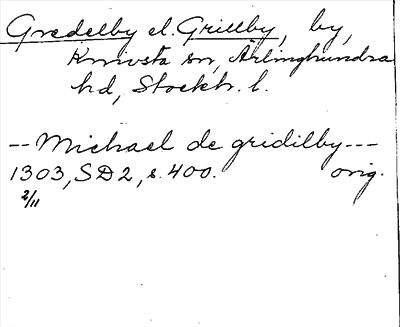 Gredelby el. Grillby, by,
Knivsta sn, Ärlinghundra
hd, Stockh. l.
--Michael de gridilby---
1303, SD2, s. 400. orig.
2/11